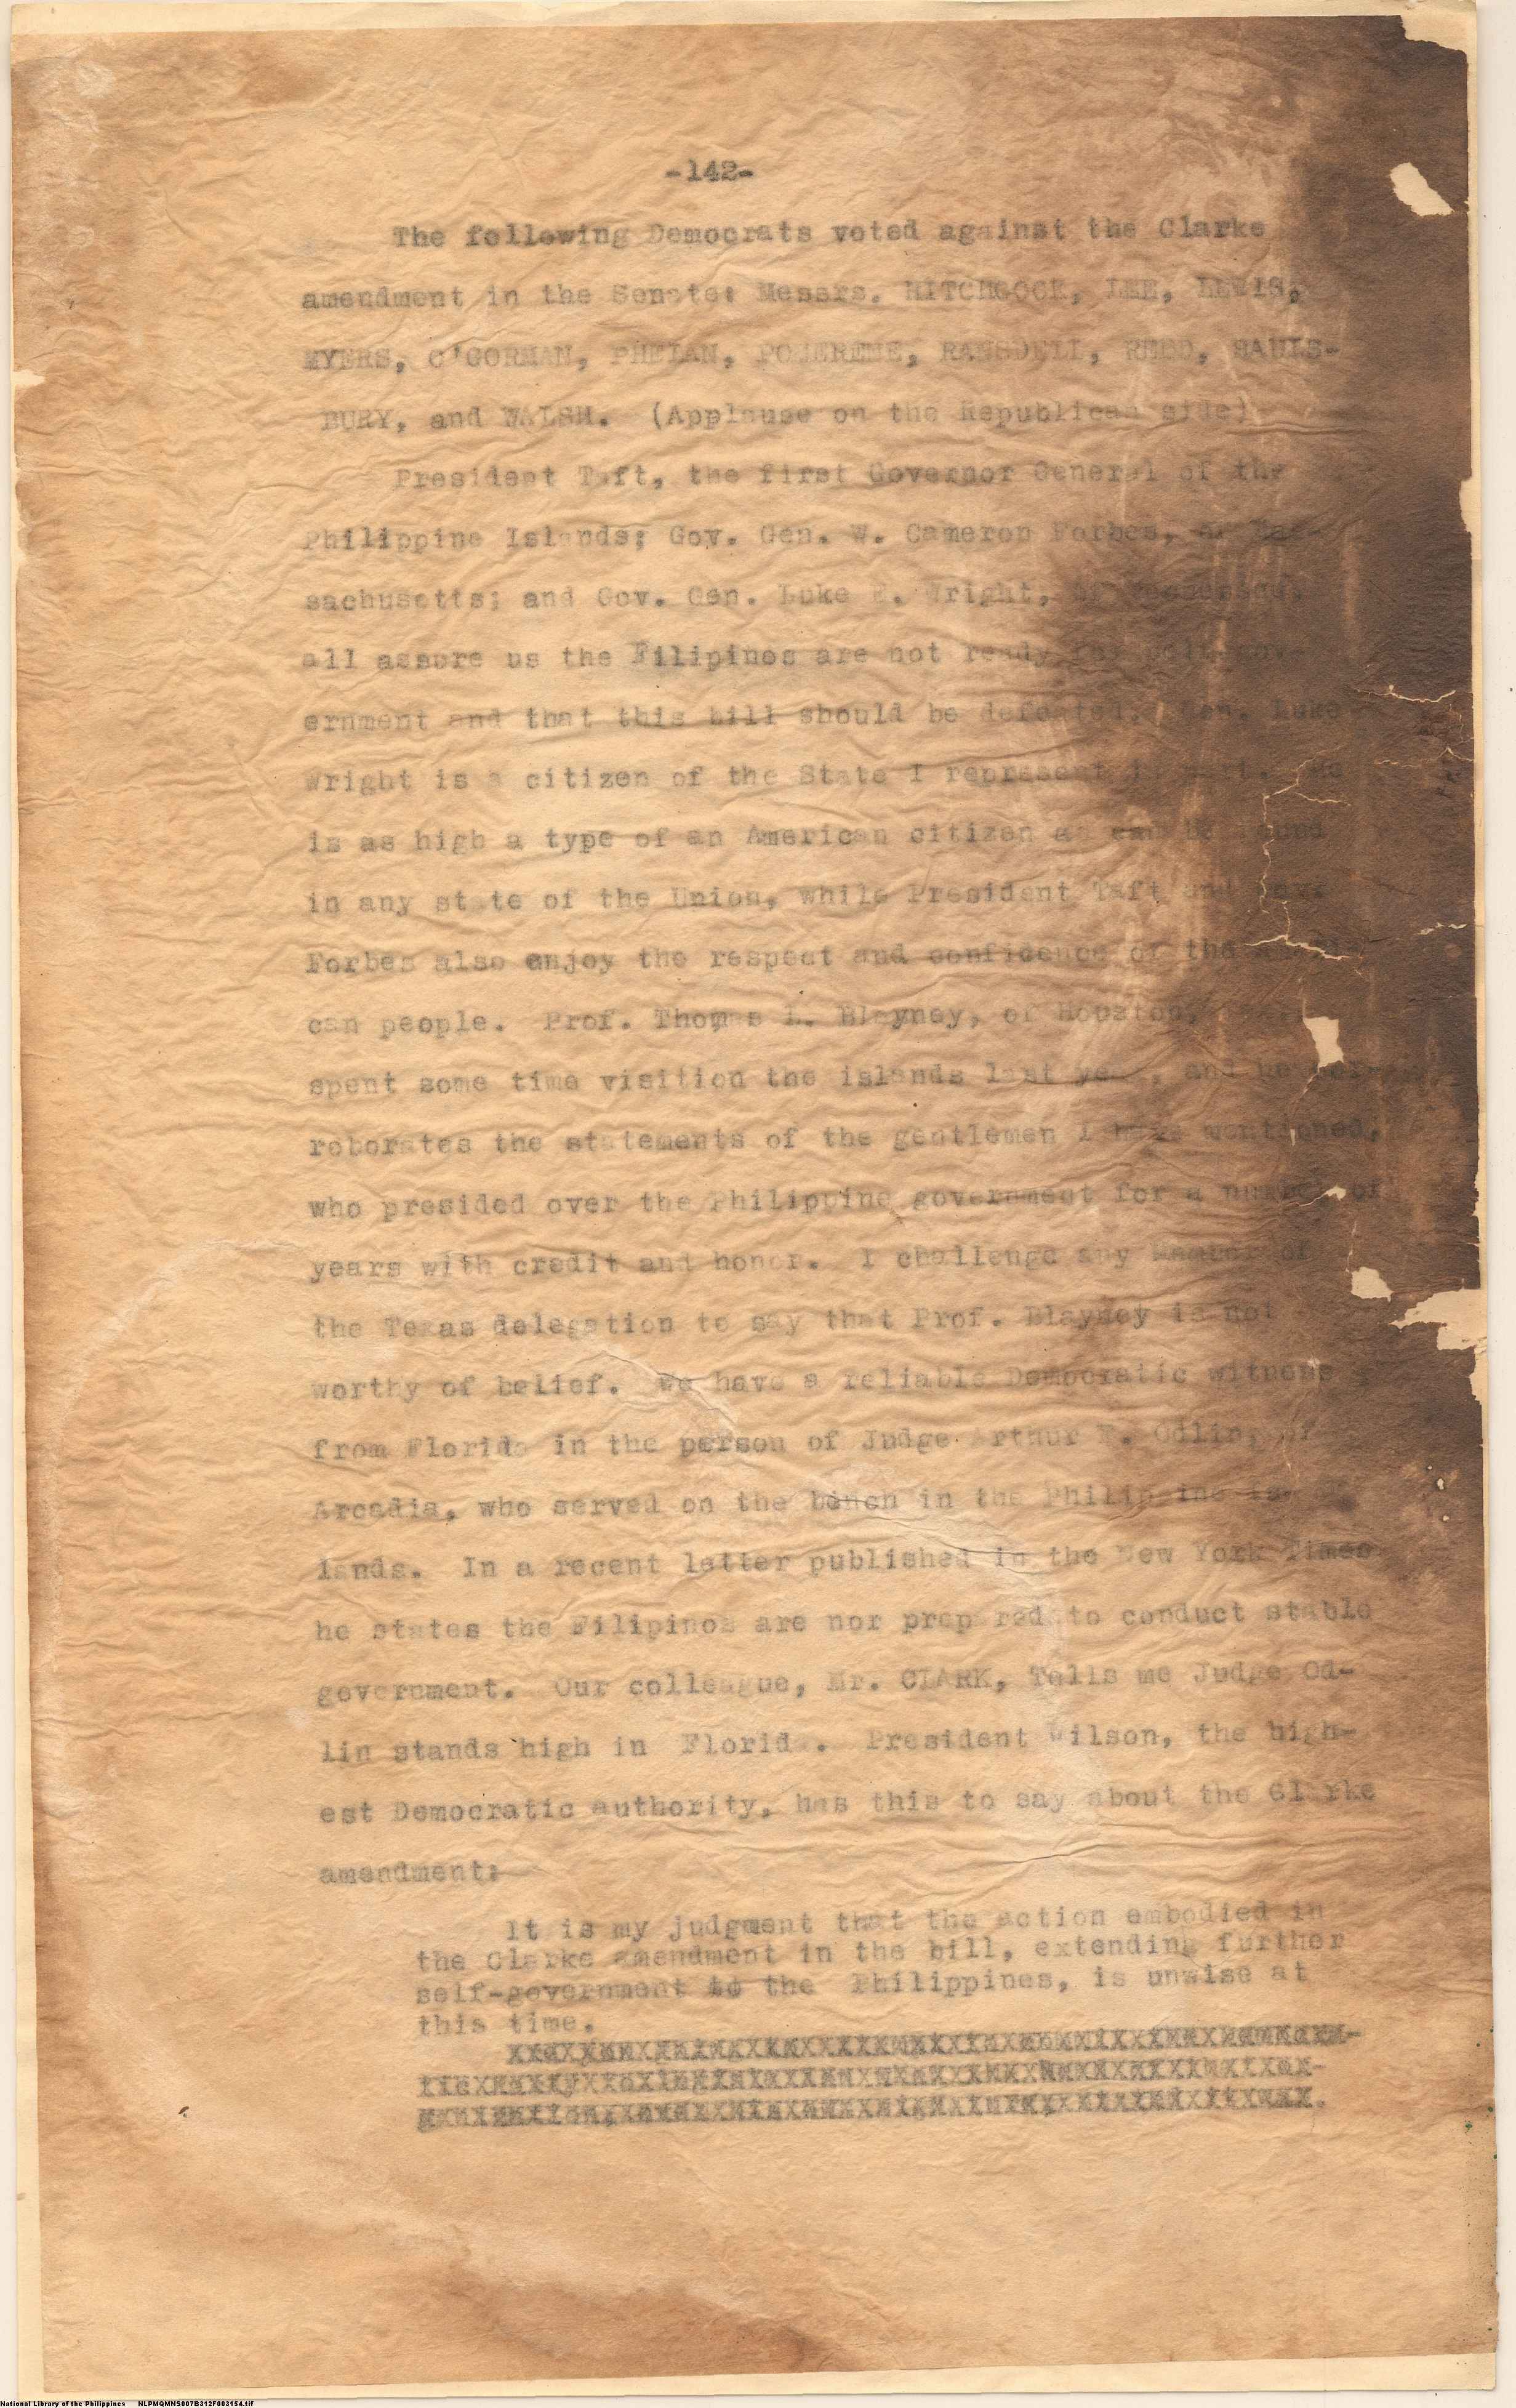 -142-
The following Democrats voted against the Clarke
amendment in the Senate: Messrs. HITCHCOCK, LEE, LEWIS,
MYERS, O'GORMAN, PHELAN, POMERENE, RANSDELL, REED, SAULS-
BURY, and WALSH. (Applause on the Republican side)
President Taft, the first Governor General of the
Philippine Islands; Gov. Gen. W. Cameron Forbes, of Mas-
sachusetts; and Gov. Gen. Luke E. Wright, of
all assure us the Filipinos are not ready for self-gov-
ernment and that this bill should be defeated. Gen. Luke
Wright is a citizen of the State I represent in part. He
is as high a type of an American citizen as can be found
in any state of the Union, while President Taft and Gov.
Forbes also enjoy the respect and confidence of the
can people. Prof. Thomas L. Blayney, of Houston,
spent some time visition the islands last year, and he cor-
roborates the statements of the gentlemen I have mentioned,
who presided over the Philippine government for a number of
years with credit and honor. I challenge any Member of
the Texas delegation to say that Prof. Blayney is not
worthy of belief. We have a reliable Democratic witness
from Florida in the person of Judge Arthur F. Odlin, of
Arcadia, who served on the bench in the Philippine Is-
lands. In a recent letter published in the New York Times
he states the Filipinos are nor prepared to conduct stable
government. Our colleague, Mr. CLARK, Tells me Judge Od-
lin stands high in Florida. President Wilson, the high-
est Democratic authority, has this to say about the Clarke
amendment:
It is my judgment that the action embodied in
the Clarke amendment in the bill, extending further
self-government to the Philippines, is unwise at
this time.
National Library of the Philippines NLPMQMNS007B312F003154.tif